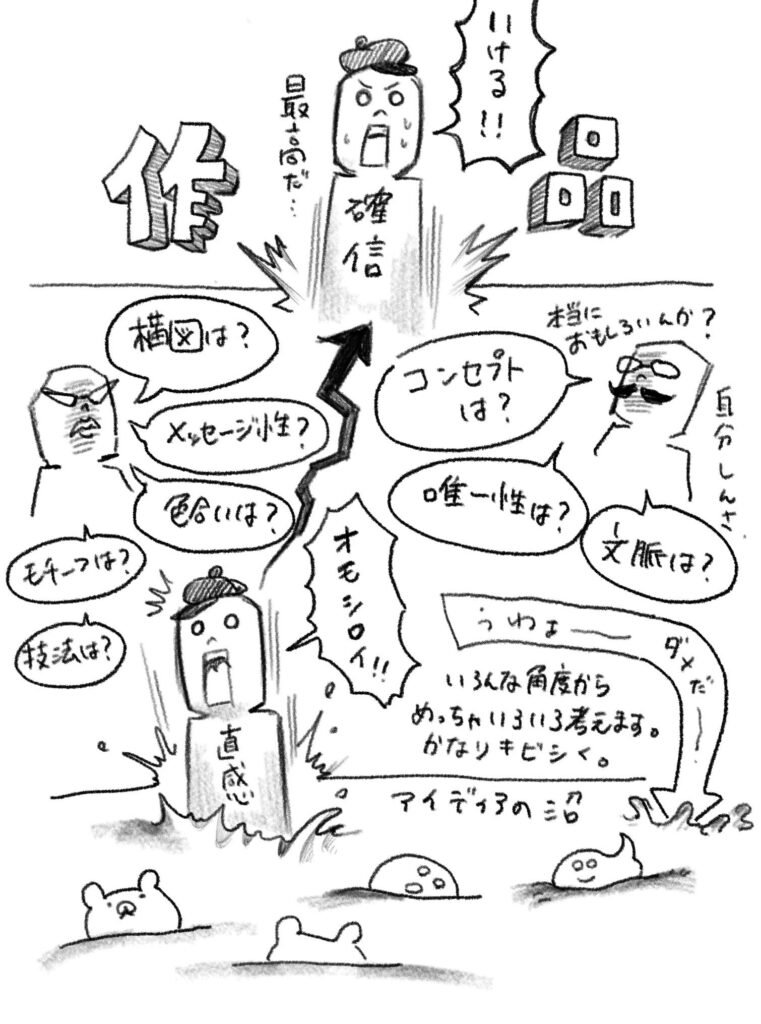 いける!!
最高だ…
作品
確信
構図は?
メッセージ性?
色合いは?
モチーフは?
技法は?
本当に
おもしろいんか?
コンセプト
は?
自分しんさ
唯一性は?
文脈は?
オモシロイ!!
直感
うわぁー ダメだー
いろんな角度から
めっちゃいろいろ考えます。
かなりキビシく。
アイディアの沼